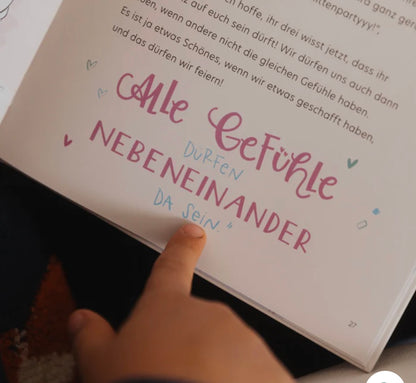 hoffe, ihr drei wisst jetzt, dass ihr
auf euch sein dürft! Wir dürfen uns auch dann
wenn andere nicht die gleichen Gefühle haben.
Es ist ja etwas Schönes, wenn wir etwas geschafft haben,
und das dürfen wir feiern!
Alle Gefühle
DÜRFEN
NEBENEINANDER
DA SEIN"
27